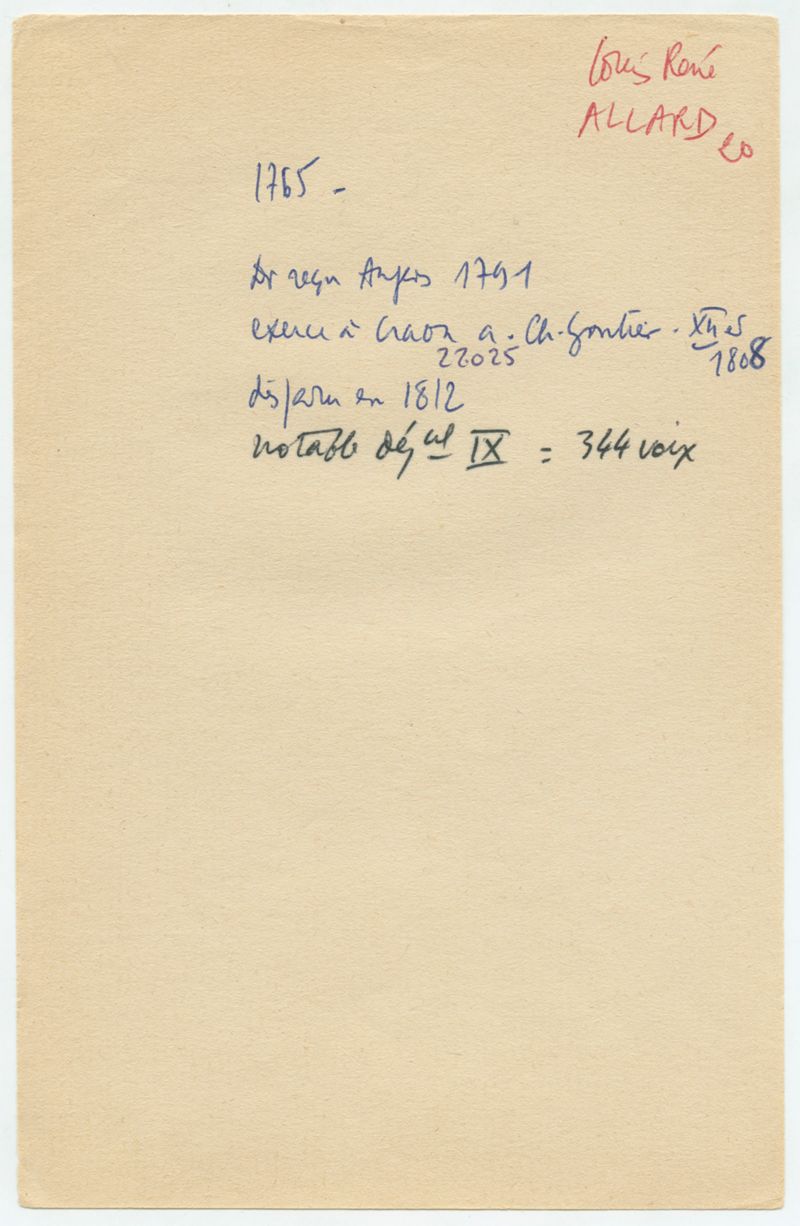 Louis René
ALLARD
20
1765 -
Dr reçu Angers 1791
exerce à Craon a. Ch-Gontier. XII et
22025 1808
disparu en 1812
notable IX = 344 voix